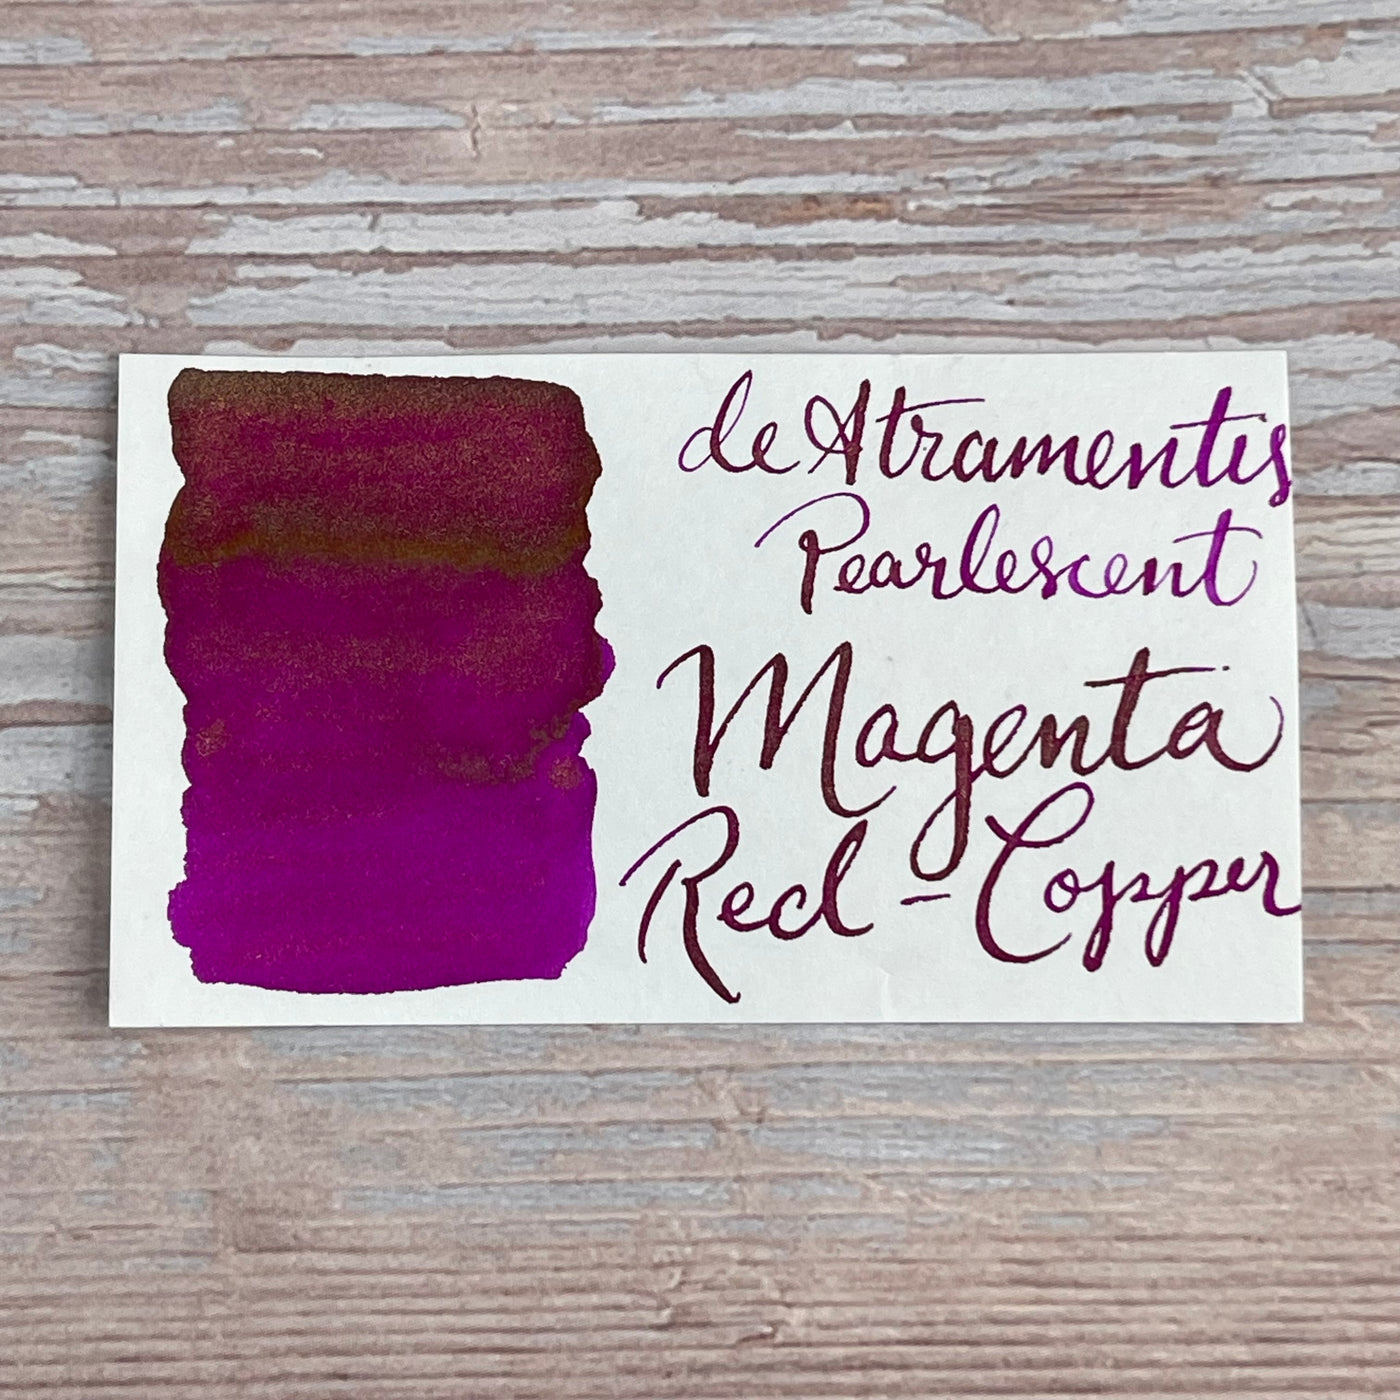 de Atramentis
Pearlescent
Magenta
Red - Copper